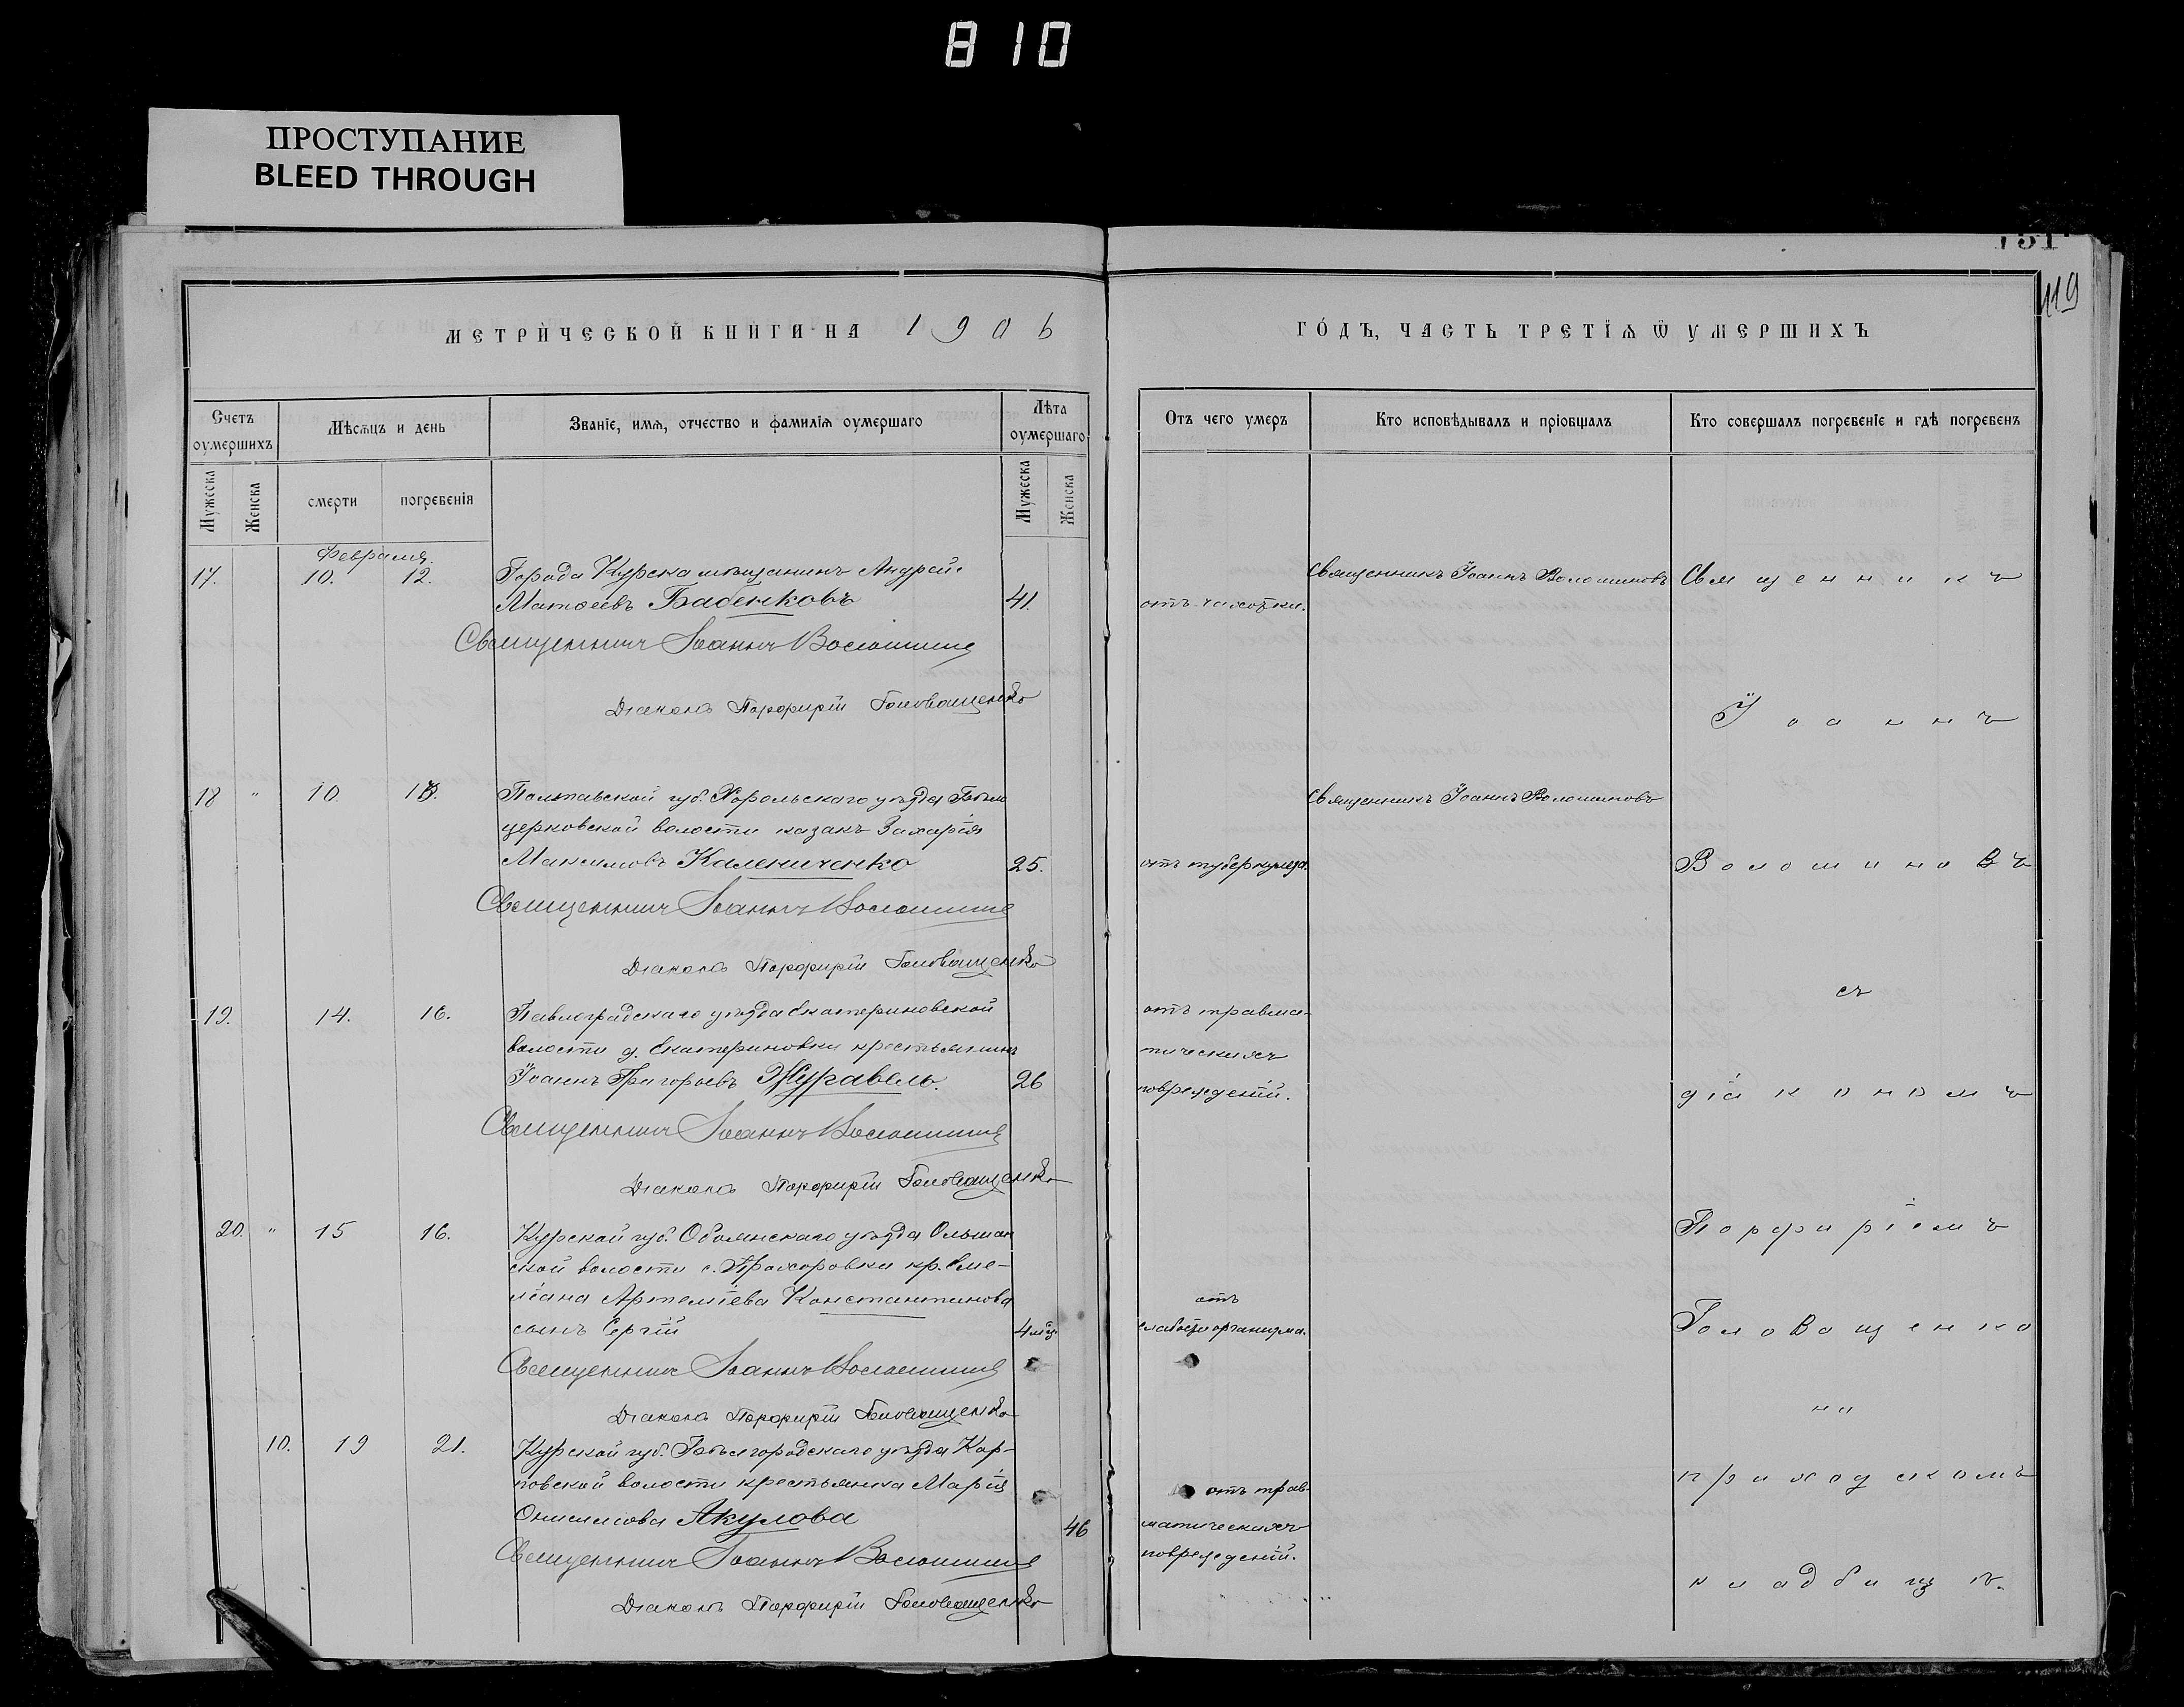 810
ПРОСТУПАНИЕ
BLEED THROUGH
119
МЕТРИЧЕСКОЙ КНИГИ НА 1906
ГОДЪ, ЧАСТЬ ТРЕТІѦ Ѿ УМЕРШИХЪ
Счетъ оумершихъ
Мѣсѧцъ и день
Званіе, имѧ, отчество и фамиліѧ оумершаго
Лѣта оумершаго
Отъ чего умеръ
Кто исповѣдывалъ и пріобщалъ
Кто совершалъ погребеніе и гдѣ погребенъ
Мужеска
Женска
смерти
погребенія
Мужеска
Женска
Февраля
17. 10. 12. Города Курска мѣщанинъ Андрей
Матѳеевъ Бабенковъ 41. отъ чахотки.
Священникъ Іоаннъ Волошиновъ
Священникъ Іоаннъ Волошинов
Діаконъ Порфирій Головащенко
18 " 10. 13. Полтавской губ. Хорольскаго уѣзда Бѣло
церковской волости казакъ Захарія
Максимовъ Калениченко 25. отъ туберкулеза.
Священникъ Іоаннъ Волошиновъ
Священникъ Іоаннъ Волошинов
Діаконъ Порфирій Головащенко
19. 14. 16. Павлоградскаго уѣзда Екатериновской
волости д. Екатериновки крестьянинъ
Іоаннъ Григорьевъ Журавель. 26
отъ травма-
тическихъ
поврежденій.
Священникъ Іоаннъ Волошинов
Діаконъ Порфирій Головащенко
20. " 15 16. Курской губ. Обоянскаго уѣзда Ольшан
ской волости с. Прохоровки кр. Еме-
ліана Артеміева Константинова
сынъ Сергій 4 мѣс.
отъ
слабости организма.
Священникъ Іоаннъ Волошинов
Діаконъ Порфирій Головащенко
10. 19 21. Курской губ. Бѣлгородскаго уѣзда Кар-
повской волости крестьянка Марія
Онисимова Акулова 46
отъ трав-
матическихъ
поврежденій.
Священникъ Іоаннъ Волошинов
Діаконъ Порфирій Головащенко
Священникъ
Іоаннъ
Волошиновъ
съ
діакономъ
Порфиріемъ
Головащенко
на
приходскомъ
кладбищѣ.